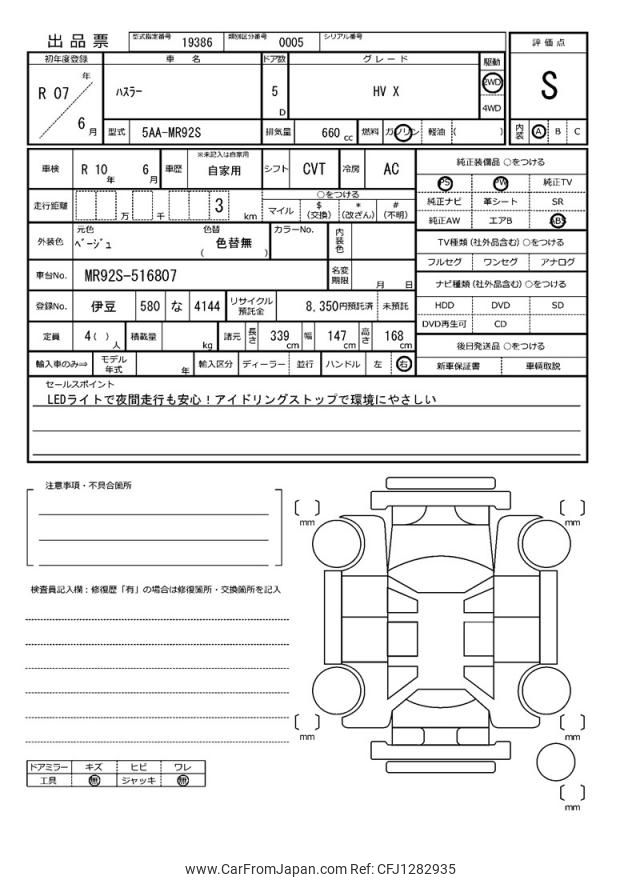 出品票 型式指定番号 19386 類別区分番号 0005 シリアル番号
評価点
S
内装 A B C
初年度登録 車名 ドア数 グレード 駆動
R 07 年 6 月 ハスラー 5 D HV X 2WD 4WD
型式 5AA-MR92S 排気量 660 cc 燃料 ガソリン 軽油 ( )
車検 R 10 年 6 月 車歴 ※未記入は自家用 自家用 シフト CVT 冷房 AC
走行距離 万 千 3 km ○をつける マイル $(交換) *(改ざん) #(不明)
外装色 元色 ベージュ 色替 色替無 ( ) カラーNo. 内装色
車台No. MR92S-516807 名変期限 月 日
登録No. 伊豆 580 な 4144 リサイクル預託金 8,350円預託済 未預託
定員 4( ) 人 積載量 kg 諸元 長さ 339 cm 幅 147 cm 高さ 168 cm
輸入車のみ⇒ モデル年式 年 輸入区分 ディーラー 並行 ハンドル 左 右
純正装備品 ○をつける
PS PW 純正TV
純正ナビ 革シート SR
純正AW エアB ABS
TV種類 (社外品含む) ○をつける
フルセグ ワンセグ アナログ
ナビ種類 (社外品含む) ○をつける
HDD DVD SD
DVD再生可 CD
後日発送品 ○をつける
新車保証書 車輌取説
セールスポイント
LEDライトで夜間走行も安心！アイドリングストップで環境にやさしい
注意事項・不具合箇所
検査員記入欄：修復歴「有」の場合は修復箇所・交換箇所を記入
ドアミラー キズ ヒビ ワレ
工具 無 ジャッキ 無
[ ] mm
[ ] mm
[ ] mm
[ ] mm
[ ] mm
www.CarFromJapan.com Ref: CFJ1282935